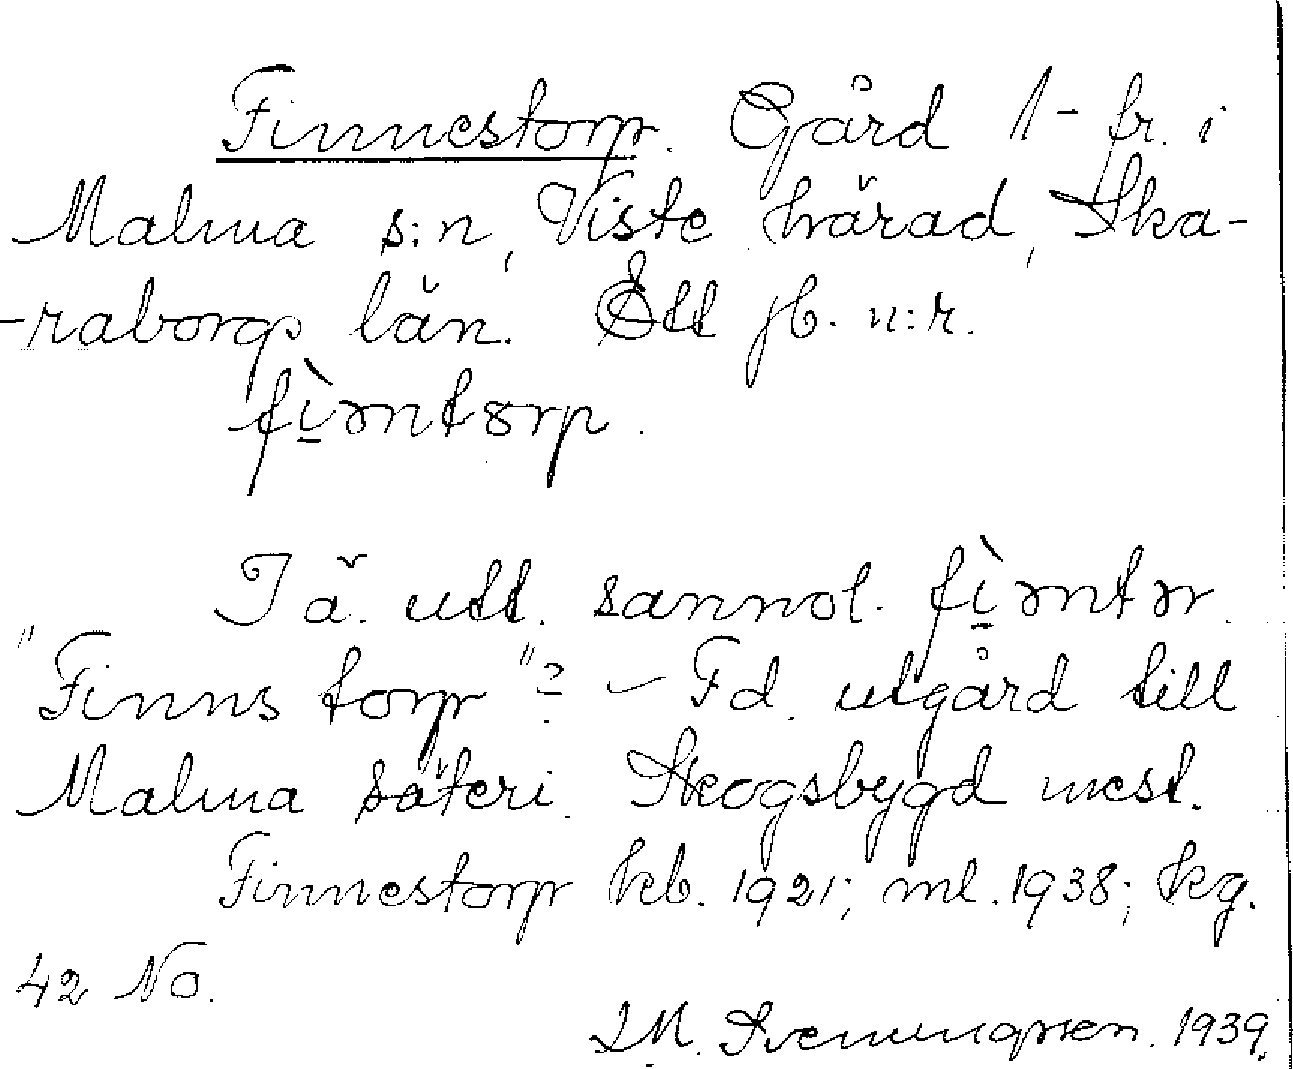 Finnestorp. Gård 1- fr. i
Malma s:n, Viste härad, Ska-
-raborgs län. Ett jb. n:r.
fı̣̀əntorp.
Tä. utt. sannol. fı̣̀əntər.
"Finns torp"? – Fd. utgård till
Malma säteri. Skogsbygd mest.
Finnestorp kb. 1921; ml. 1938; kg.
42 No.
M. Svenungsson. 1939.